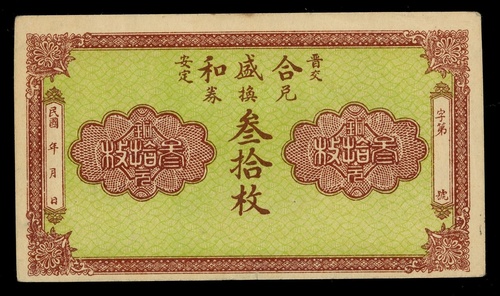 晋交
合盛和
兌換券
安定
叁拾枚
叁拾枚
叁拾枚
字第 號
民國 年 月 日